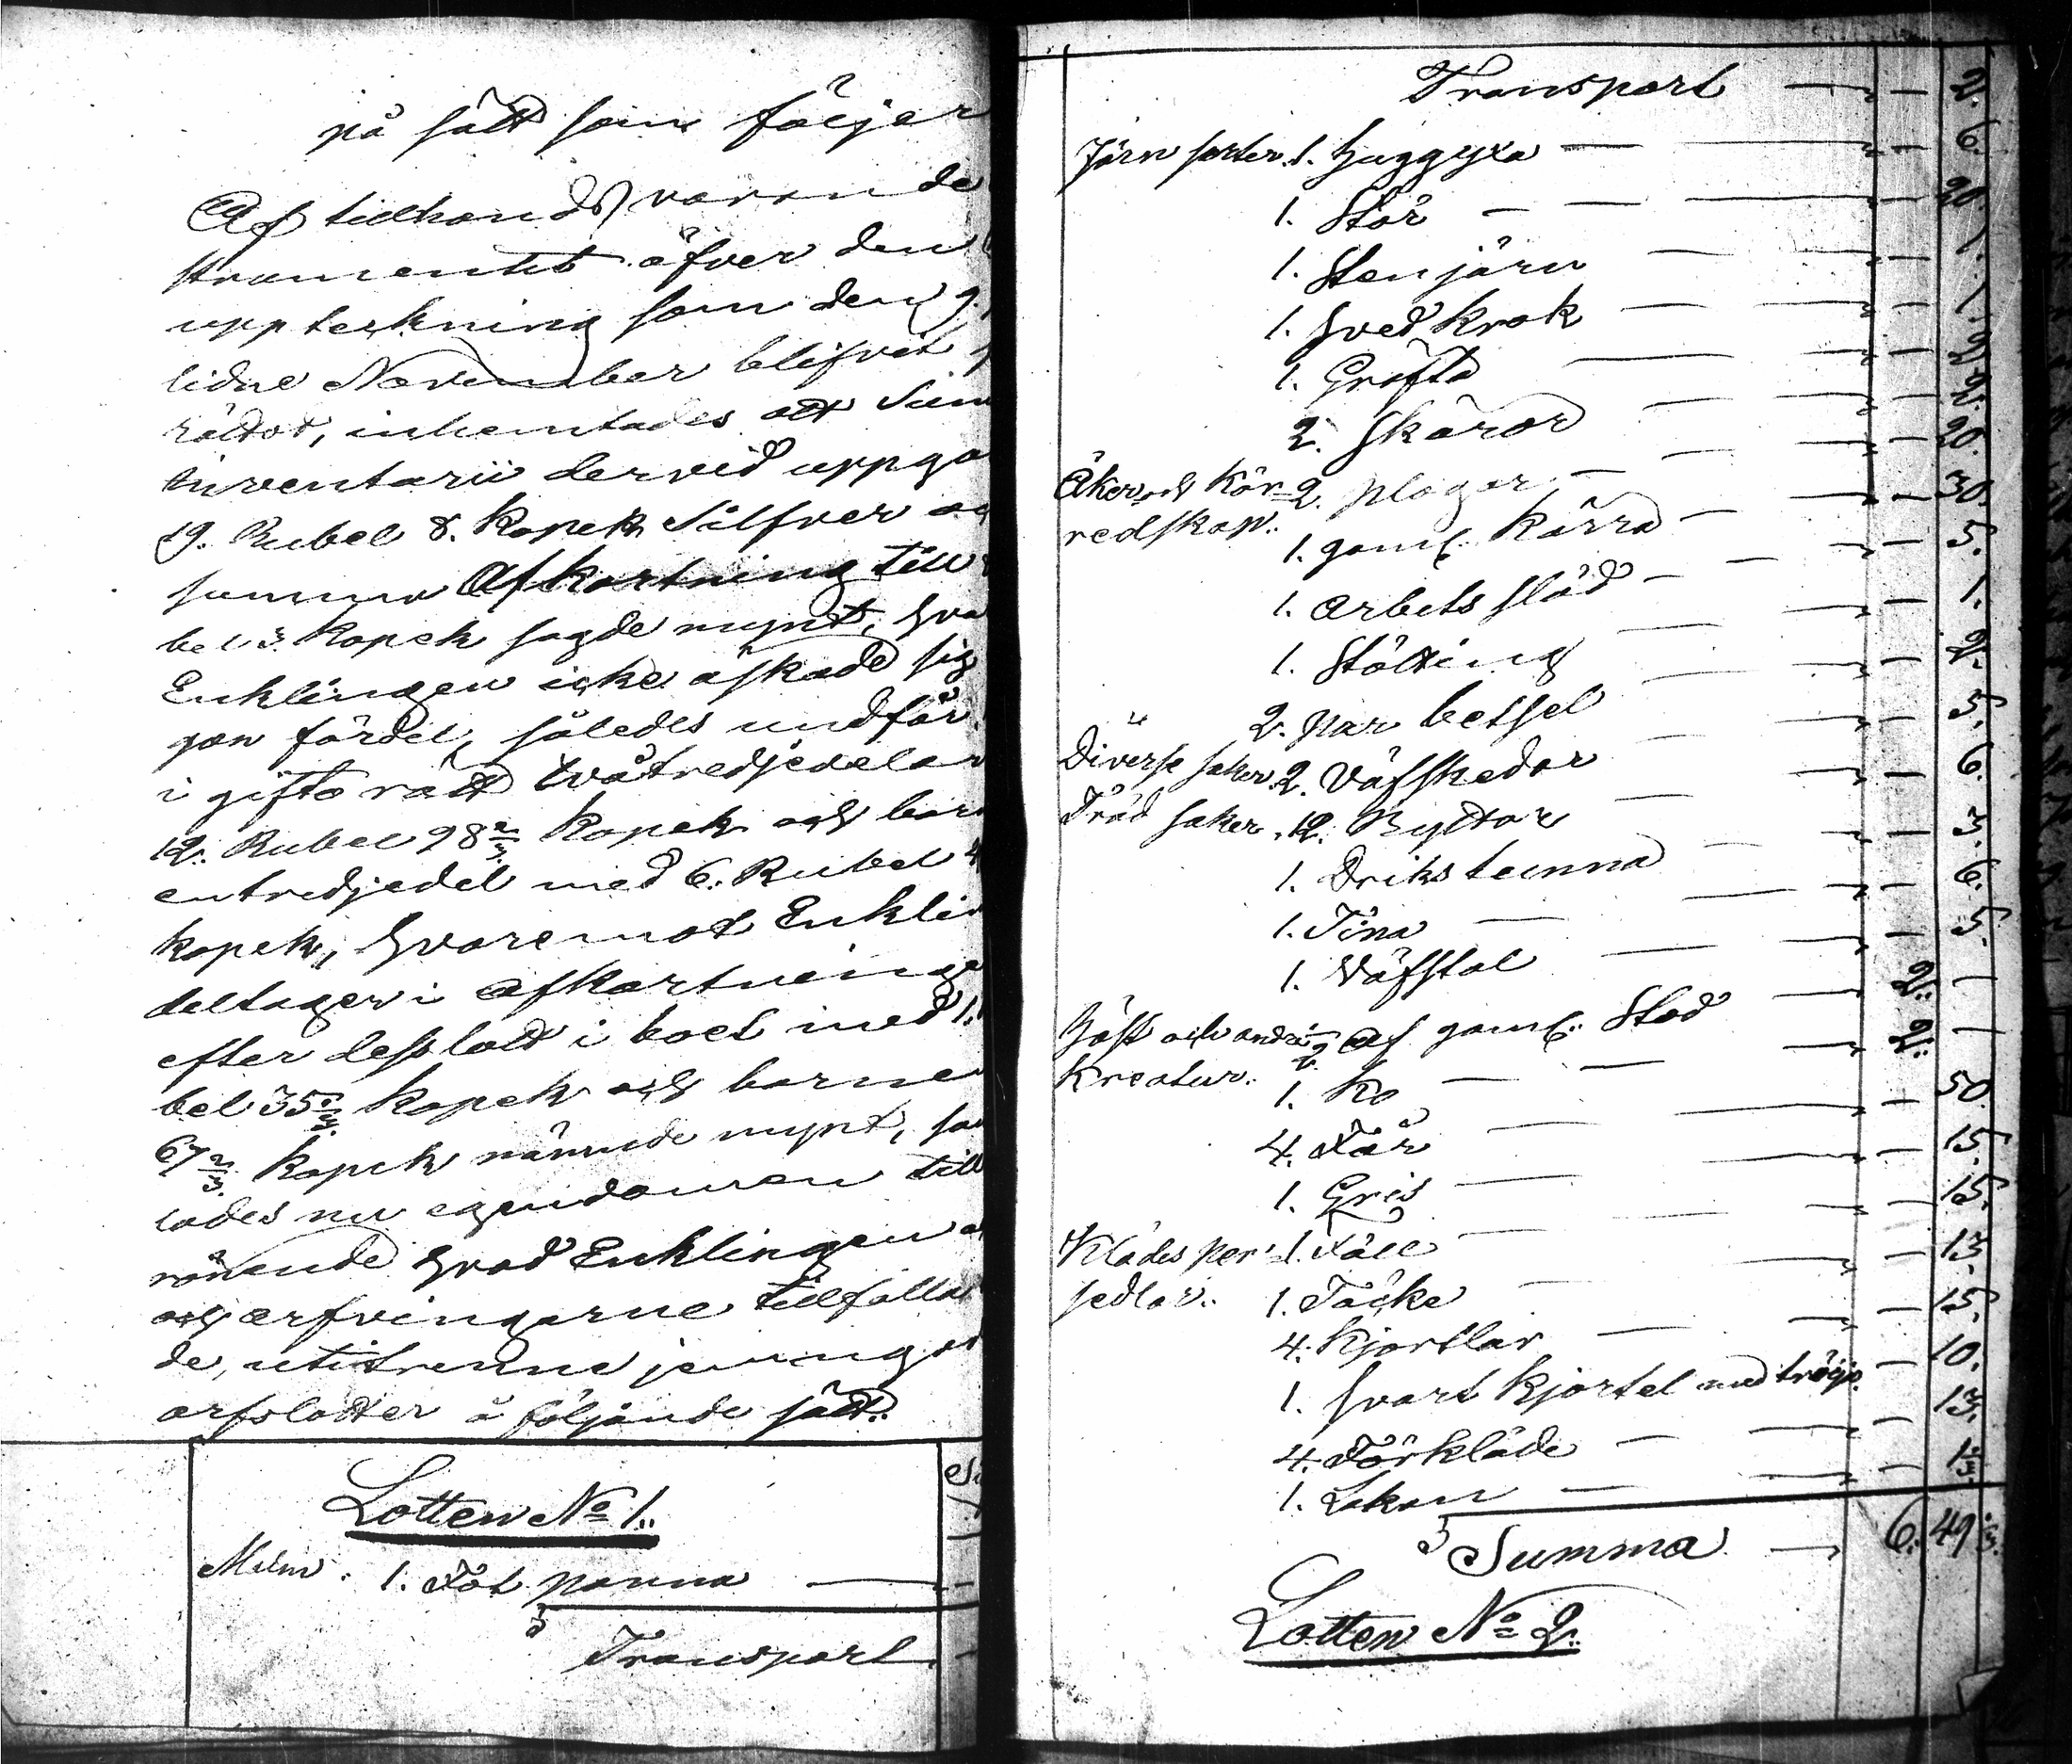 på sätt som föijer
Af tillhands varande
strumentet öfver den
uppteckning som den 9.
lidne November blifvit
rättad, inhemtades att Sum
Inventarii dervid uppgå
19. Rubel 8. Kopek Silfver och
summa Afkortning till
bel 3. Kopek sagde mynt, hva
Enklingen icke äskade sig
gon fördel, således undfår
i giftorätt tvåtredjedelar
12. Rubel 98 2/3 Kopek och bar
entredjedel med 6. Rubel 4
kopek, hvaremot Enklin
deltager i afkortninge
efter dess lott i boet med 1.
bel 35 1/3 Kopek och barnen
67 2/3 Kopek nämnde mynt, så
lades nu egendomen till
rönende hvad Enklingen
och arfvingarne tillfalla
de, uti trenne jemngod
arfslotter å följande sätt:
Si
Lotten No 1.
Malm. 1. Föt panna —
Transport —
Transport — " — 2.
Järn saker. 1. huggyxa — " — 6.
1. Stör — " — 20.
1. Stenjärn — " — 1.
1. Svedkrok — " — 1.
1. Gräfta — " — 20.
2. Skäror — " — 2.
Åker och Kör- 2. plogar — " — 20.
redskap. 1. gaml. Kärra — " — 30.
1. arbets släd — " — 5.
1. Stötting — " — 1.
2. par betsel — " — 2.
Diverse saker. 2. Väfskedar — " — 5.
Träd saker. 12. Byttor — " — 6.
1. Drikstunna — " — 3.
1. Tina — " — 6.
1. Väfstol — " — 5.
Häst och andra 1/2 af gaml. Stod — 2. —
Kreatur. 1. Ko — 2. —
4. Får — " — 50.
1. Gris — " — 15.
Klädes per- 1. Fäll — " — 15.
sedlar. 1. Täcke — " — 13.
4. Kjortlar — " — 15.
1. Svart Kjortel med tröija — 10.
4. Förkläde — " — 13.
1. Lakan — " — 1 1/3
Summa — 6. 49 1/3.
Lotten No 2.